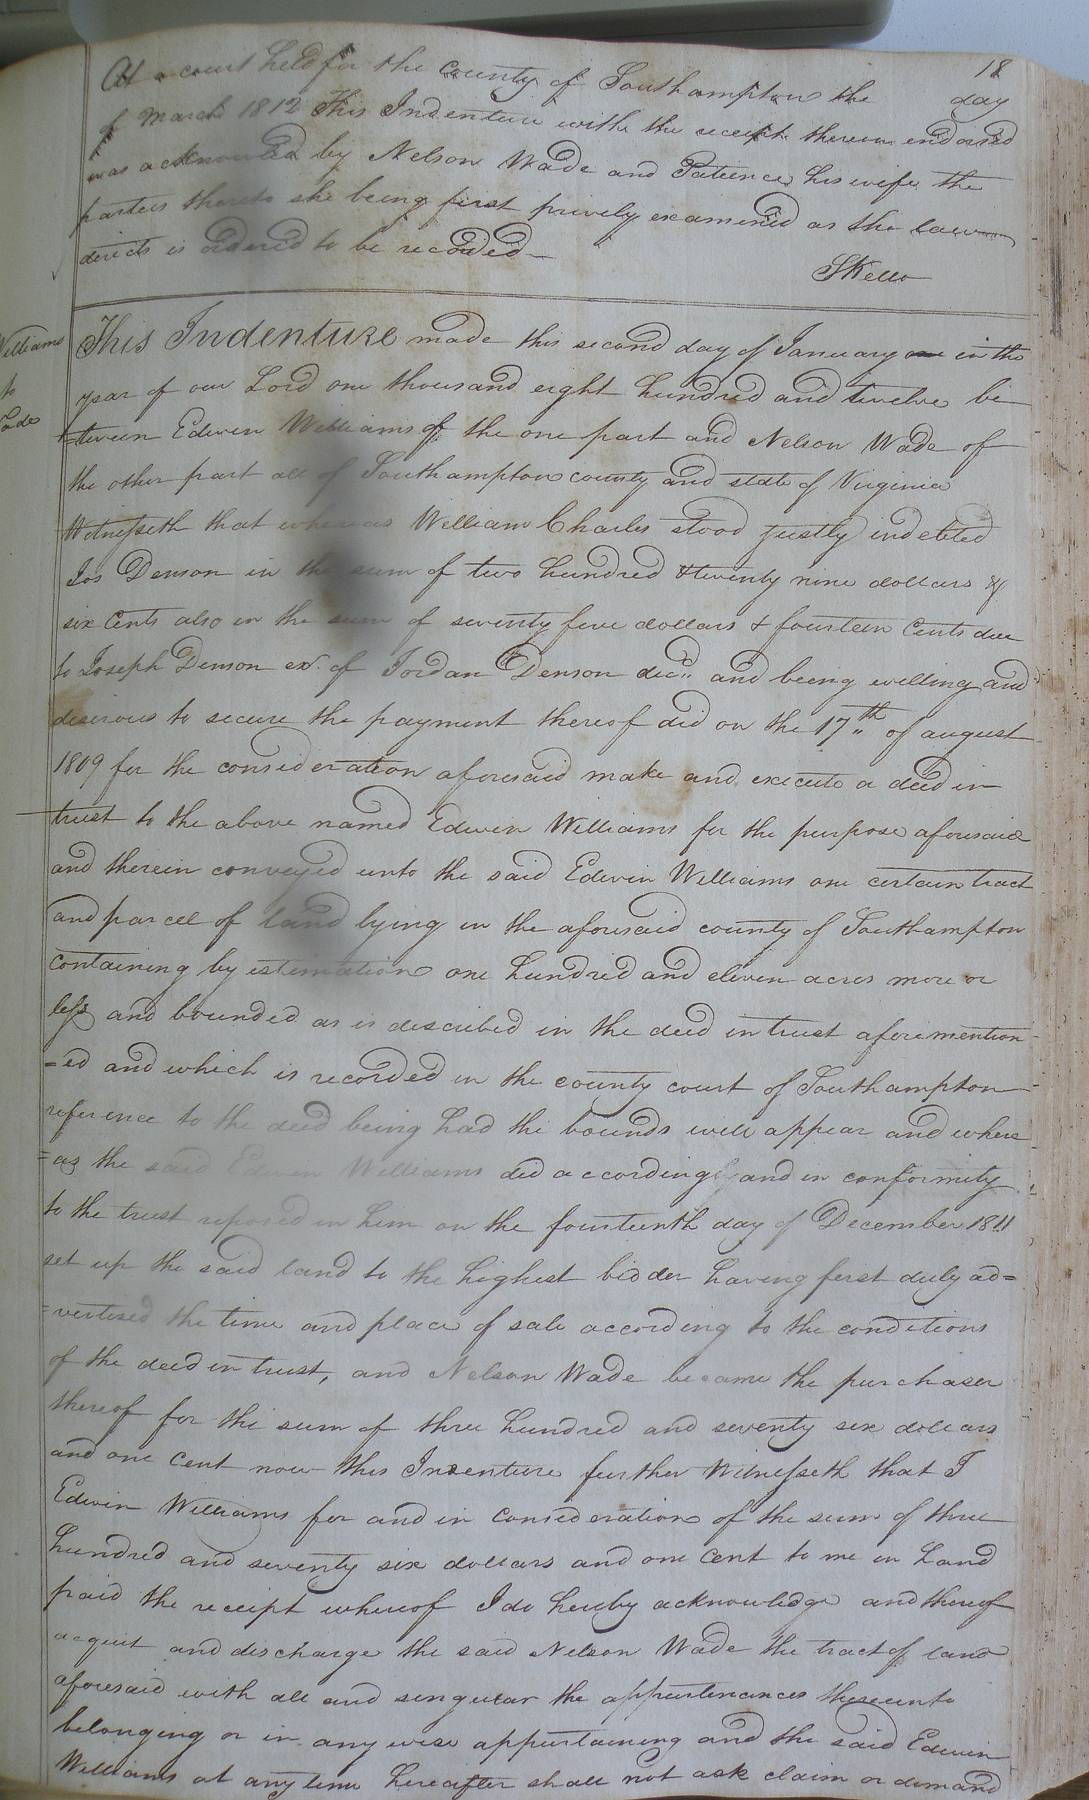 18
At a court held for the county of Southampton the day
of March 1812 This Indenture with the receipt thereon endorsed
was acknowled by Nelson Wade and Patience his wife the
parties thereto she being first privily examined as the law
directs is ordered to be recorded
SKello
Williams
to
Wade
This Indenture made this second day of January in the
year of our Lord one thousand eight hundred and twelve be
=tween Edwin Williams of the one part and Nelson Wade of
the other part all of Southampton county and state of Virginia
Witnesseth that whereas William Charles stood justly indebted
Jos Denson in the sum of two hundred & twenty nine dollars &
six Cents also in the sum of seventy five dollars & fourteen Cents due
to Joseph Denson exr. of Jordan Denson decd. and being willing and
desirous to secure the payment thereof did on the 17th of august
1809 for the consideration aforesaid make and execute a deed in
trust to the above named Edwin Williams for the purpose aforesaid
and therein conveyed unto the said Edwin Williams one certain tract
and parcel of land lying in the aforesaid county of Southampton
containing by estimation one hundred and eleven acres more or
less and bounded as is described in the deed in trust aforemention
=ed and which is recorded in the county court of Southampton
reference to the deed being had the bounds will appear and where
=as the said Edwin Williams did accordingly and in conformity
to the trust reposed in him on the fourteenth day of December 1811
set up the said land to the highest bidder having first duly ad=
=vertised the time and place of sale according to the conditions
of the deed in trust, and Nelson Wade became the purchaser
thereof for the sum of three hundred and seventy six dollars
and one cent now this Indenture further Witnesseth that I
Edwin Williams for and in consideration of the sum of three
hundred and seventy six dollars and one Cent to me in hand
paid the receipt whereof I do hereby acknowledge and thereof
acquit and discharge the said Nelson Wade the tract of land
aforesaid with all and singular the appurtenances thereunto
belonging or in any wise appurtaining and the said Edwin
Williams at any time hereafter shall not ask claim or demand